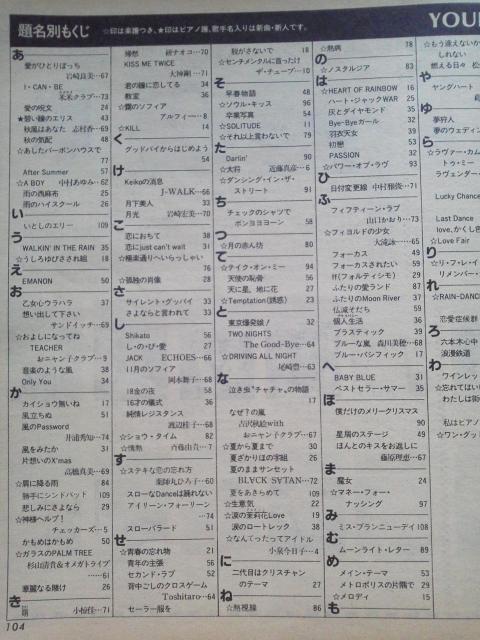 題名別もくじ
☆印は楽譜つき、★印はピアノ譜、歌手名入りは新曲・新人です。
YOU
あ
愛がひとりぼっち
岩崎良美…67
I・CAN・BE
米米クラブ…73
愛の呪文 24
★碧い瞳のエリス 43
秋風はあなた 志村香…69
秋の気配 48
☆あしたバーボンハウスで
77
After Summer 57
☆A BOY 中村あゆみ…62
雨の西麻布 25
雨のハイスクール 26
い
いとしのエリー 109
う
WALKIN' IN THE RAIN 35
☆うしろゆびさされ組 18
え
EMANON 50
お
乙女心ウラハラ 37
想い出して下さい
サンドイッチ…69
☆およしになってね
TEACHER
おニャン子クラブ…9
音楽のような風 38
Only You 34
か
カイショウ無いね 17
風立ちぬ 51
風のPassword
井浦秀知…74
風をみかたに 31
片想いのX'mas
高橋真美…69
☆肩に降る雨 84
勝手にシンドバット 109
悲しみにさよなら 29
☆神様ヘルプ!
チェッカーズ…5
かもめはかもめ 50
☆ガラスのPALM TREE
杉山清貴&オメガトライブ
……61
華麗なる賭け 26
き
小椋佳…71
帰郷 研ナオコ…70
KISS ME TWICE
大神剛…71
君の瞳に恋してる 34
教室 36
☆霧のソフィア
アルフィー…8
☆KILL 14
く
グッドバイからはじめよう
54
け
Keikoの消息
J-WALK…66
月下美人 33
月光 岩崎宏美…70
こ
恋におちて 38
恋にjust can't wait 31
☆極楽通りへいらっしゃい
76
☆孤独の肖像 28
さ
サイレント・グッバイ 33
さよならと言われて 33
し
Shikato 56
し・の・び・愛 27
JACK ECHOES…66
11月のソフィア
岡本舞子…68
18金の夜 58
16才の儀式 36
純情レジスタンス
渡辺桂子…68
☆ショウ・タイム 82
☆情熱 斉藤由貴…7
す
☆ステキな恋の忘れ方
薬師丸ひろ子…60
スローなDanceは踊れない
アイリーン・フォーリーン
…74
スローバラード 51
せ
☆青春の忘れ物 21
青年の主張 56
セカンド・ラブ 52
背中ごしのクロスゲーム
Toshitaro…64
セーラー服を
脱がさないで 18
☆センチメンタルに首ったけ
ザ・チューブ…10
そ
早春物語 48
☆ソウル・キッス 96
卒業写真 54
☆SOLITUDE 11
☆それ以上言わないで 79
た
Darlin' 90
☆大将 近藤真彦…6
☆ダンシング・イン・ザ・
ストリート 91
ち
チェックのシャツで
ボンヨヨヨーン 58
つ
☆月の赤ん坊 80
て
☆テイク・オン・ミー 94
天使の恥骨 56
天に星、地に花 27
☆Temptation(誘惑) 23
と
東京爆発娘! 32
TWO NIGHTS
The Good-Bye…64
☆DRIVING ALL NIGHT
尾崎豊…63
な
泣き虫"チャチャ"の物語
17
なぜ?の嵐
吉沢秋絵with
おニャン子クラブ…67
☆夏から夏まで 30
夏ざかりほの字組 26
夏のままサンセット
BLVCK SYTAN…72
夏をあきらめて 109
☆生意気 22
☆涙の茉莉花Love 19
涙のロートレック 38
☆なんてったってアイドル
小泉今日子…4
に
二代目はクリスチャン
のテーマ 27
ね
☆熱視線 86
☆熱病 78
の
☆ノスタルジア 83
は
☆HEART OF RAINBOW 16
ハート・ジャックWAR 25
灰とダイヤモンド 35
Bye-Byeガール 32
羽衣天女 39
初戀 53
PASSION 32
☆パワー・オブ・ラヴ 93
ひ
日付変更線 中村雅俊…71
ふ
フィフティーン・ラブ
山口かおり…73
☆フィヨルドの少女
大滝詠一……65
フォーカス 49
フォーカスされたい 59
ff(フォルティシモ) 29
ふたりの愛ランド 87
ふたりのMoon River 37
仏滅そだち 59
個人生活 36
プラスティック 39
ブルーな嵐 森川美穂…68
ブルー・パシフィック 17
へ
BABY BLUE 31
ベストセラー・サマー 35
ほ
僕だけのメリークリスマス
90
星屑のステージ 49
ほんとのキスをお返しに
藤原理恵…67
ま
魔女 24
☆マネー・フォー・
ナッシング 97
み
ミス・ブランニューデイ 108
む
ムーンライト・レター 89
め
メイン・テーマ 53
メトロポリスの片隅で 29
☆メロディ 15
も
☆もう逢えないか
しれない
燃える日々
や
ヤングハート
ゆ
夢狩人
夢のウェディン
ら
☆ラヴァー・カム
トゥ・ミー
ラヴェンダー
Lucky Chance
Last Dance
love,かくし色
☆Love Fair
り
☆リ・フレ・イ
リメンバー
れ
☆RAIN-DANC
恋愛症候群
ろ
六本木心中
浪漫鉄道
わ
ワインレッ
☆忘れてはい
わたしは街
私はピアノ
☆ワン・グッ
104